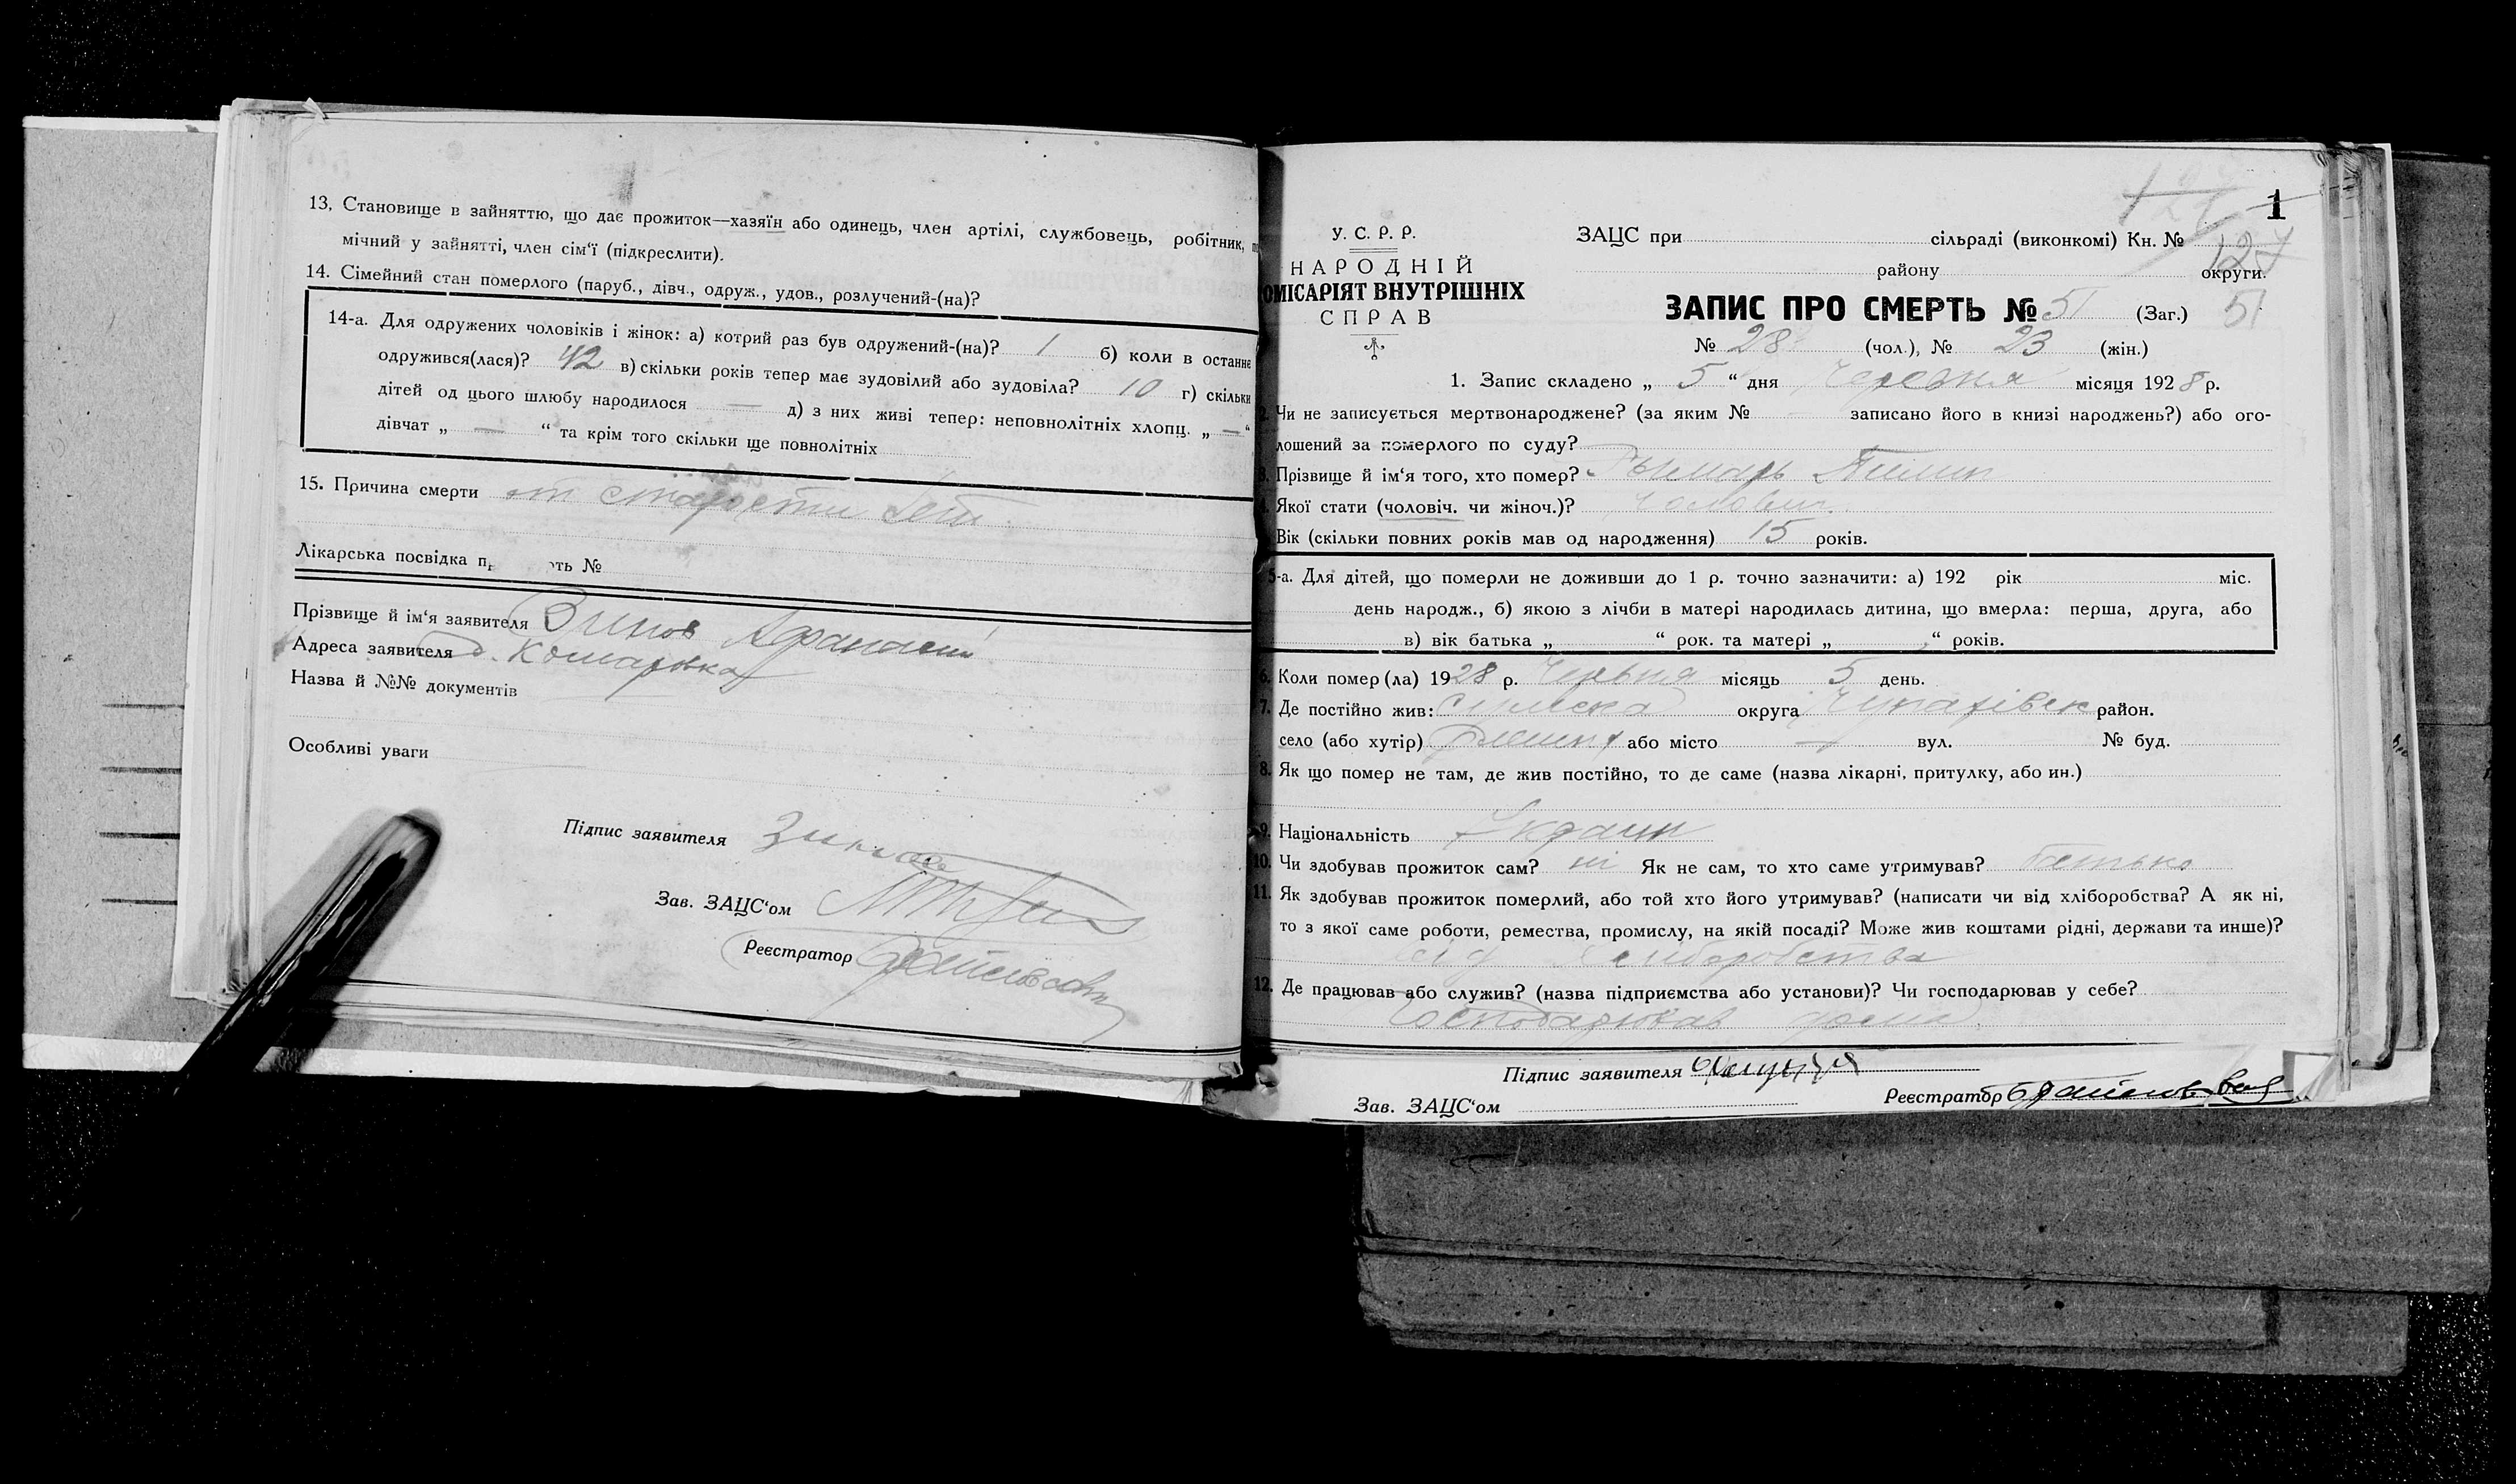 13. Становище в зайняттю, що дає прожиток—хазяїн або одинець, член артілі, службовець, робітник,
мічний у зайнятті, член сім'ї (підкреслити).
14. Сімейний стан померлого (паруб., дівч., одруж., удов., розлучений-(на)?
14-а. Для одружених чоловіків і жінок: а) котрий раз був одружений-(на)? 1 б) коли в останнє
одружився(лася)? 42 в) скільки років тепер має зудовілий або зудовіла? 10 г) скільки
дітей од цього шлюбу народилося — д) з них живі тепер: неповнолітніх хлопц. „ — “
дівчат „ — “ та крім того скільки ще повнолітніх
15. Причина смерти от старости лет
Лікарська посвідка №
Прізвище й ім'я заявителя Зинов Афанасий
Адреса заявителя Комаровка
Назва й №№ документів
Особливі уваги
Підпис заявителя
Зав. ЗАЦС'ом
Реєстратор
1
127
У. С. Р. Р.
НАРОДНІЙ
КОМІСАРІЯТ ВНУТРІШНІХ
СПРАВ
ЗАЦС при сільраді (виконкомі) Кн. №
району округи.
ЗАПИС ПРО СМЕРТЬ № 51 (Заг.) 51
№ 28 (чол.), № 23 (жін.)
1. Запис складено „ 5 “ дня Червня місяця 1928 р.
2. Чи не записується мертвонароджене? (за яким № записано його в книзі народжень?) або ого-
лошений за померлого по суду?
3. Прізвище й ім'я того, хто помер? Рымарь
4. Якої стати (чоловіч. чи жіноч.)? чоловіч.
Вік (скільки повних років мав од народження) 15 років.
5-а. Для дітей, що померли не доживши до 1 р. точно зазначити: а) 192 рік міс.
день народж., б) якою з лічби в матері народилась дитина, що вмерла: перша, друга, або
в) вік батька „ “ рок. та матері „ “ років.
6. Коли помер(ла) 1928 р. Червня місяць 5 день.
7. Де постійно жив: Сумска округа Чупахівск район.
село (або хутір) або місто — вул. № буд.
8. Як що помер не там, де жив постійно, то де саме (назва лікарні, притулку, або ин.)
9. Національність Украин
10. Чи здобував прожиток сам? ні Як не сам, то хто саме утримував? батько
11. Як здобував прожиток померлий, або той хто його утримував? (написати чи від хліборобства? А як ні,
то з якої саме роботи, ремества, промислу, на якій посаді? Може жив коштами рідні, держави та инше)?
від хлиборобства
12. Де працював або служив? (назва підприємства або установи)? Чи господарював у себе?
Господарював дома.
Підпис заявителя
Зав. ЗАЦС'ом Реєстратор